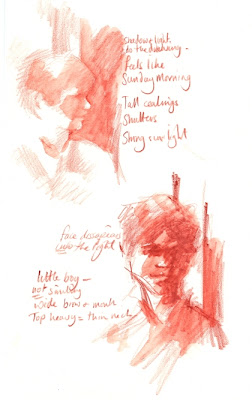 Shadow + light
do the describing -
feels like
Sunday Morning
Tall cealings
Shutters
Strong sun light
face dissapears
into the light
little boy -
not smiling
wide brow + mouth
Top heavy = thin neck